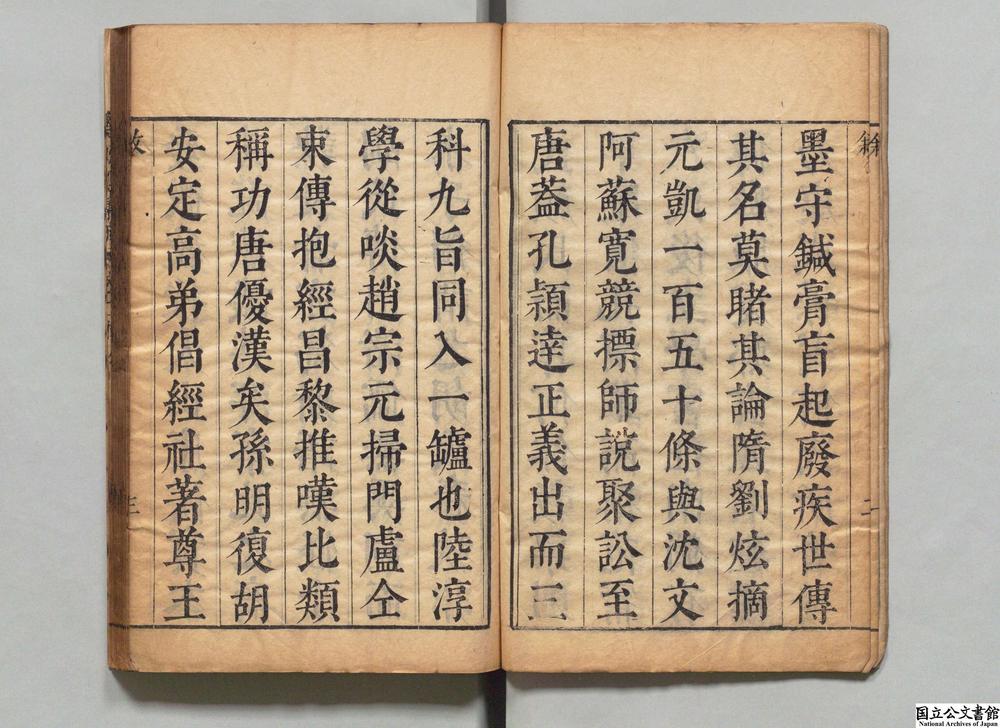 墨守鍼膏肓起廢疾世傳
其名莫睹其論隋劉炫摘
元凱一百五十條與沈文
阿蘇寬競摽師說聚訟至
唐葢孔頴逹正義出而三
科九旨同入一罏也陸淳
學從啖趙宗元掃門盧仝
束傳抱經昌黎推嘆比類
稱功唐優漢矣孫明復胡
安定高弟倡經社著尊王
国立公文書館
National Archives of Japan